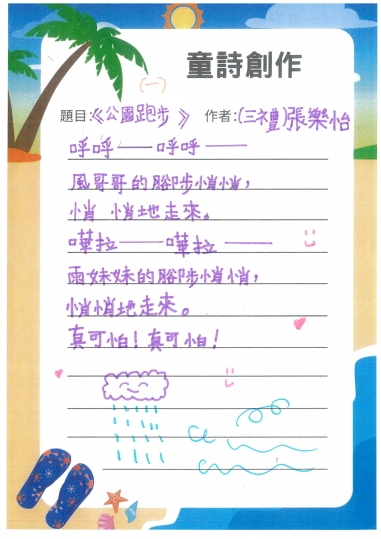 童詩創作
(一)
題目:《公園跑步》 作者:(三禮)張樂怡
呼呼——呼呼——
風哥哥的腳步悄悄,
悄悄地走來。
嘩拉——嘩拉——
雨妹妹的腳步悄悄,
悄悄地走來。
真可怕!真可怕!